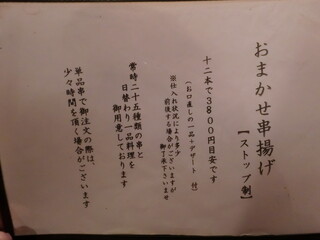 おまかせ串揚げ
【ストップ制】
十二本で3800円目安です
(お口直しの一品+デザート 付)
※仕入れ状況により多少
前後する場合がございますが
御了承下さいませ
常時二十五種類の串と
日替わり一品料理を
御用意しております
単品串で御注文の際は、
少々時間を頂く場合がございます